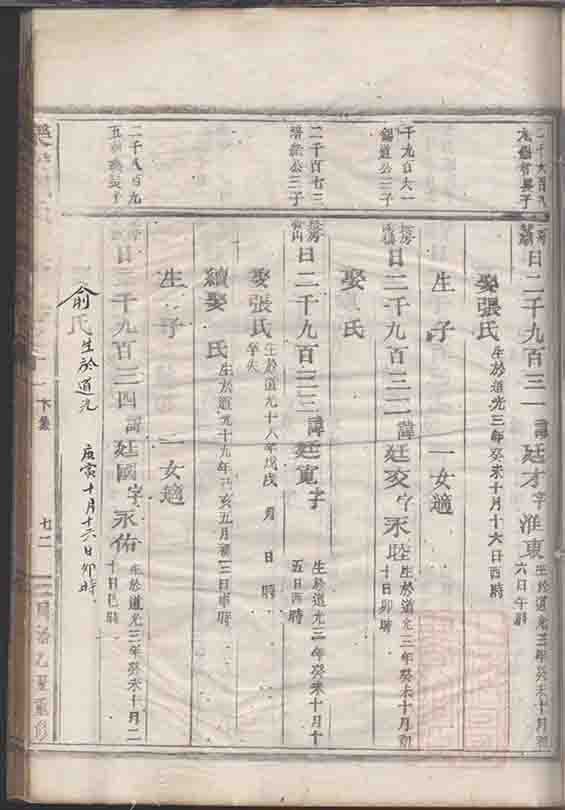 二千八百九
長房 日二千九百三一 諱廷才字淮東 生於道光三年癸未十月初六日午時
娶張氏 生於道光三年癸未十月十六日酉時
生子 一女適
千九百六一
錫道公三子
長房 日二千九百三二 諱廷交字永陞 生於道光三年癸未十月初十日卯時
娶 氏
二千百七三
公三子
長房 日二千九百三三 諱廷寬字 生於道光三年癸未十月十五日酉時
娶張氏 生於道光十八年戊戌 月 日 時 卒失
續娶 氏 生於道光十九年己亥五月初三日 時
生子 一女適
二千八百九
日二千九百三四 諱廷國字永佑 生於道光三年癸未十月二十日巳時
俞氏 生於道光 庚寅十月十六日卯時
七二